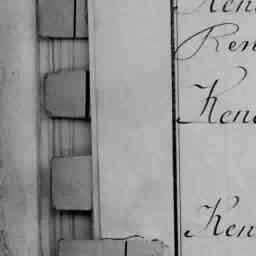 Ken
Ren
Ken
Ken